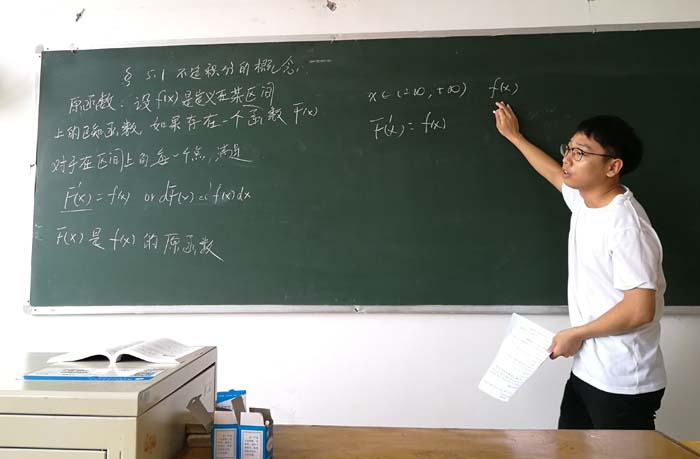 § 5.1 不定积分的概念.
原函数: 设 f(x)是定义在某区间
上的已知函数, 如果存在一个函数 F(x)
对于在区间上的每一个点, 满足
F'(x) = f(x) or dF(x) = f(x)dx
F(x) 是 f(x) 的原函数
x ∈ (-∞, +∞) f(x)
F'(x) = f(x)